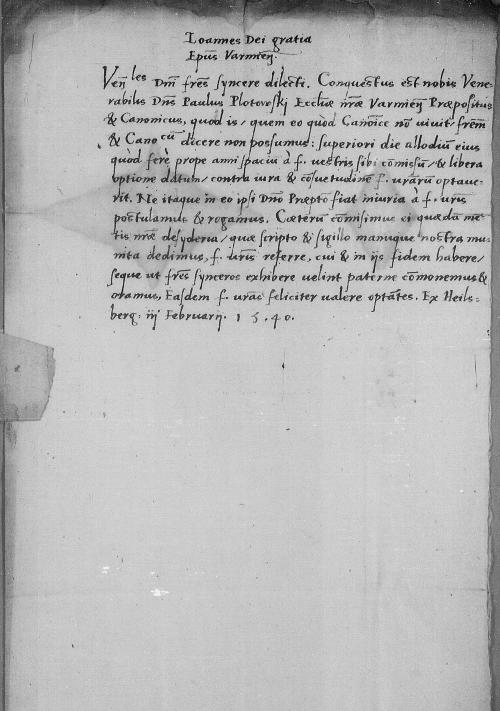 Ioannes Dei gratia
Ep̃us Varmieñ.
Veñ les Dñi frẽs syncere dilecti. Conquestus est nobis Vene-
rabilis Dñs Paulus Plotovskj Eccliæ nr̃æ Varmieñ Præpositus
& Canonicus, quod is, quem eo quòd Canonicè nõ vivit, frẽm
& Cano cũ dicere non possumus: superiori die allodiũ eius
quòd ferè prope anni spaciũ à f. vestris sibi cõmissũ, & libera
optione datum, contra iura & cõsuetudinẽ f. vrãrũ optave-
rit. Ne itaque in eo ipsi Dño Præpto fiat iniuria à f. vr̃is
postulamus & rogamus. Cæterũ cõmisimus ei quædã mẽ-
tis nr̃æ desyderia, quæ scripto & sigillo manuque nostra mu-
nita dedimus, f. vr̃is referre, cui & in ijs fidem habere,
seque ut frẽs synceros exhibere velint paterne cõmonemus &
oramus, Easdem f. vrãs feliciter valere optãtes. Ex Heils-
berg: iij Februarij. 1540.